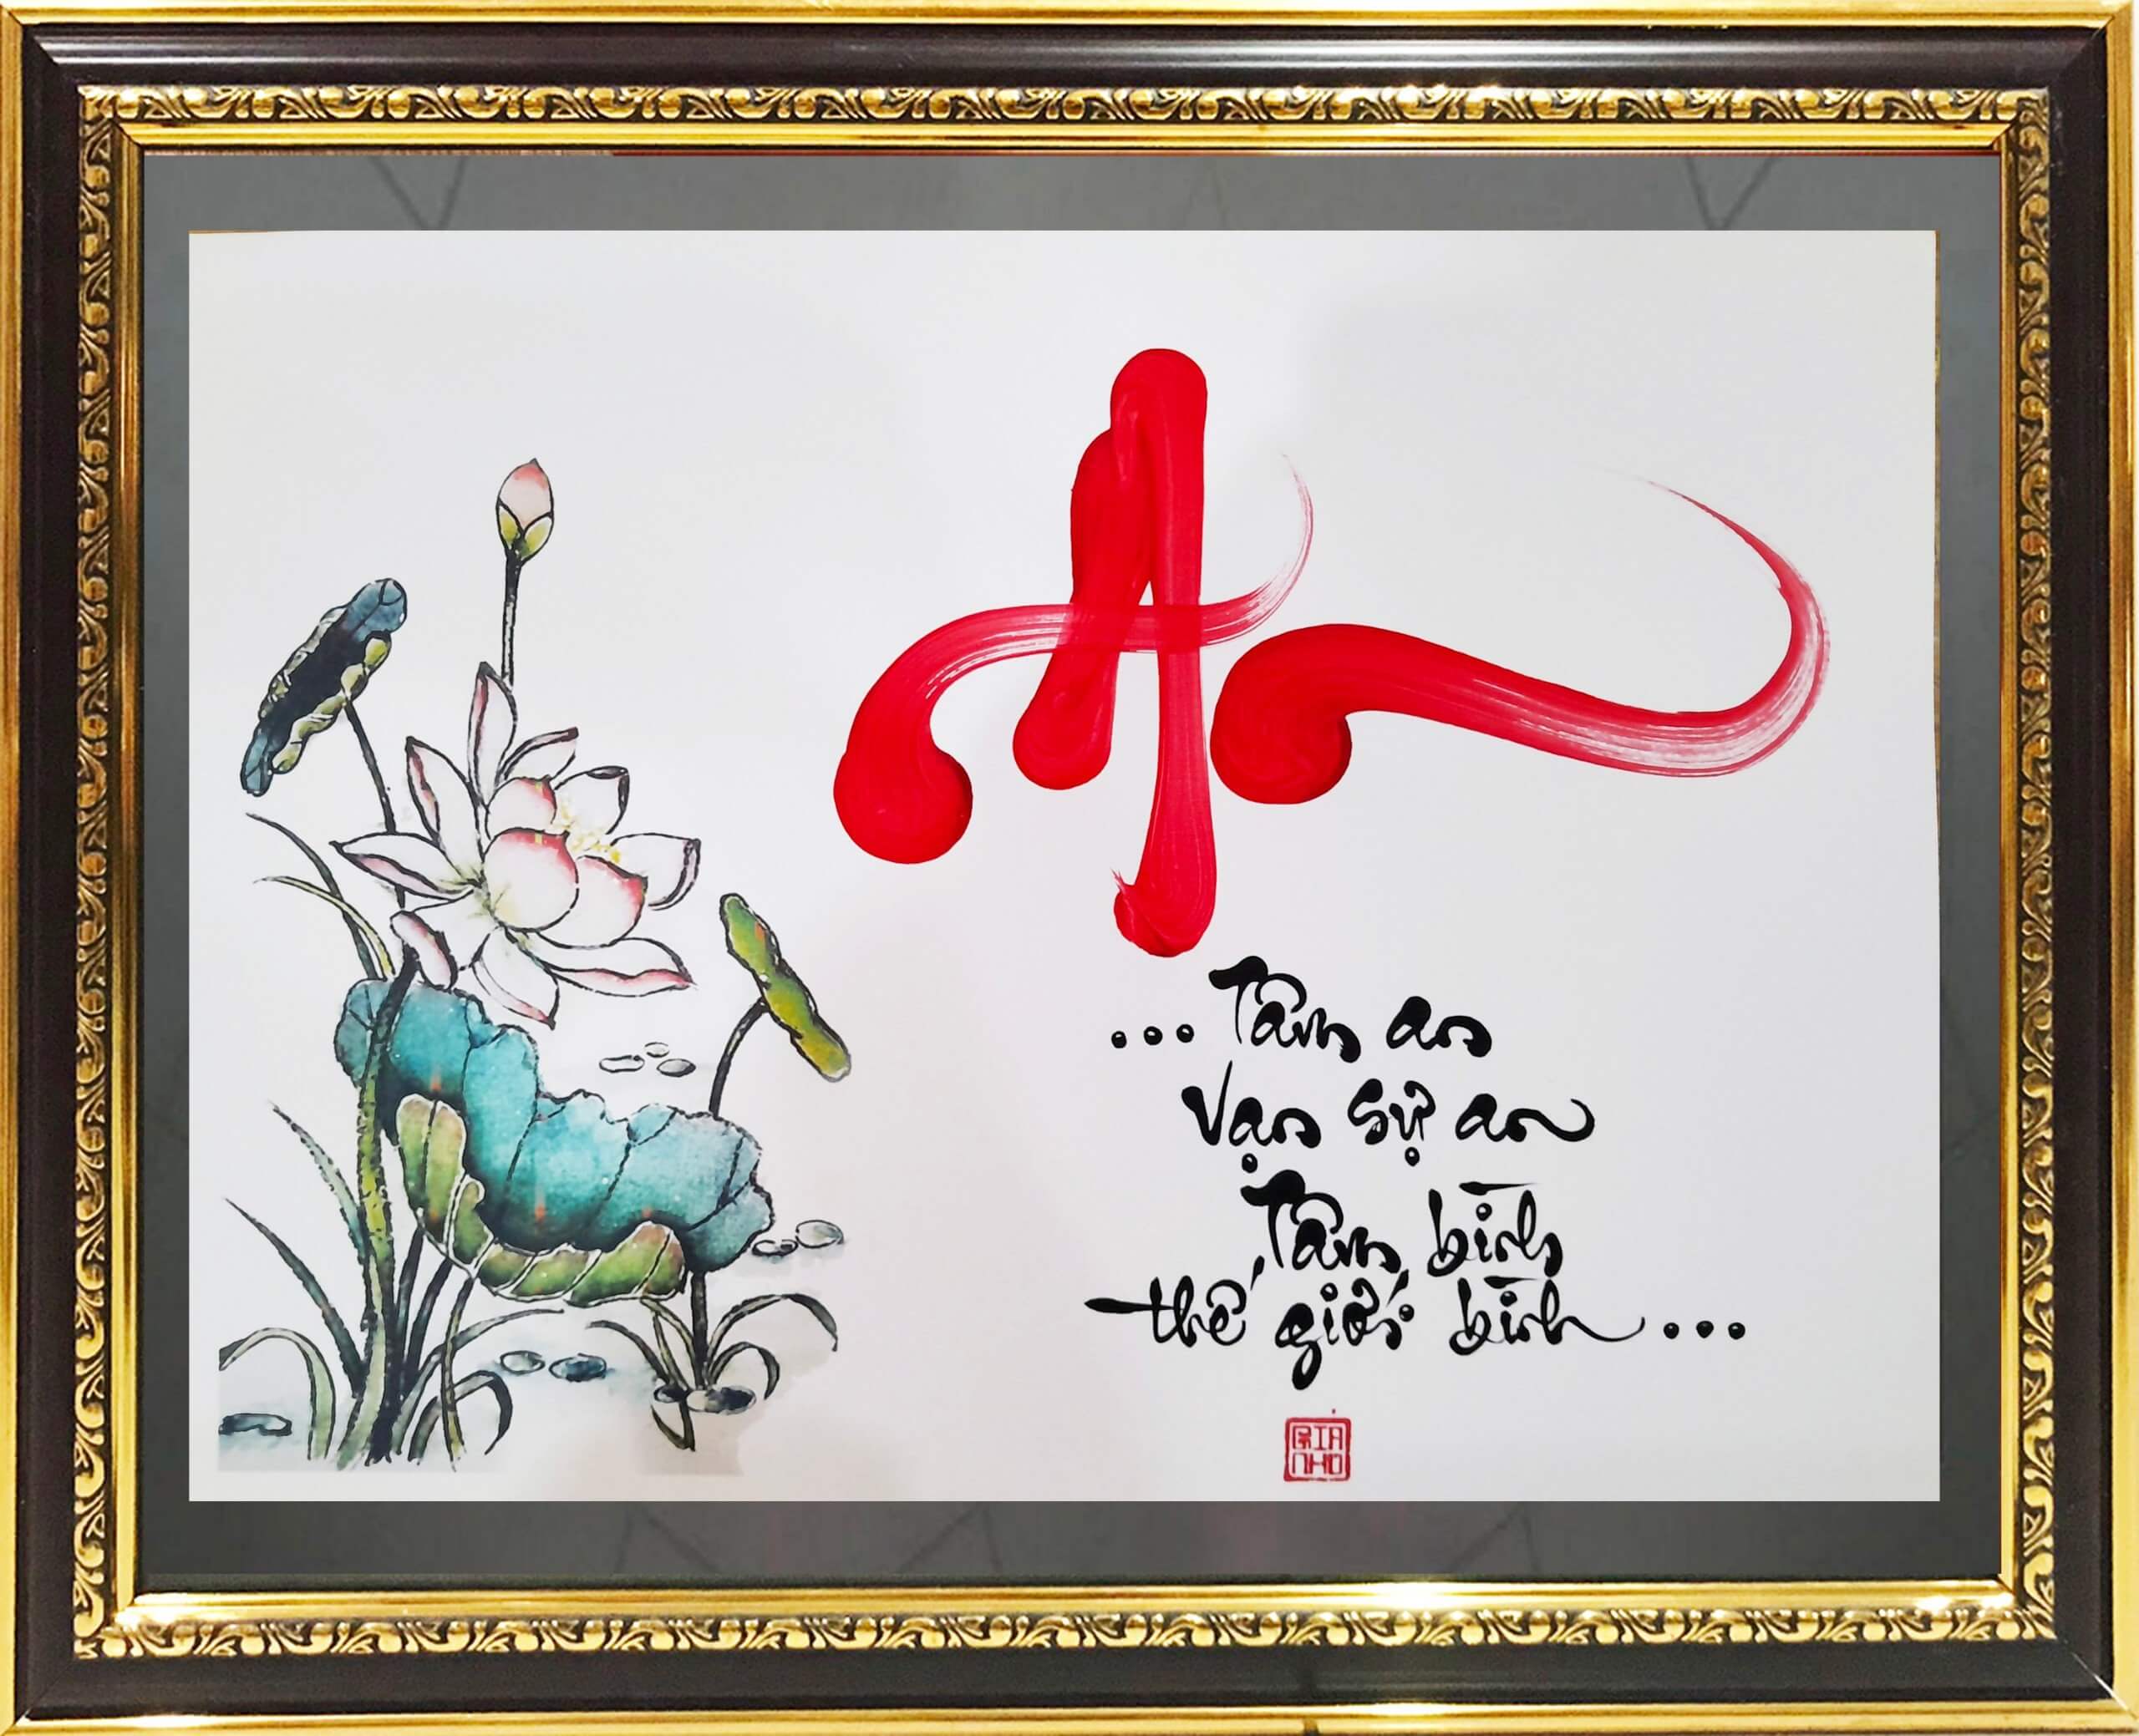 An
...Tâm an
Vạn sự an
Tâm bình
thế giới bình...
GIA
NHO